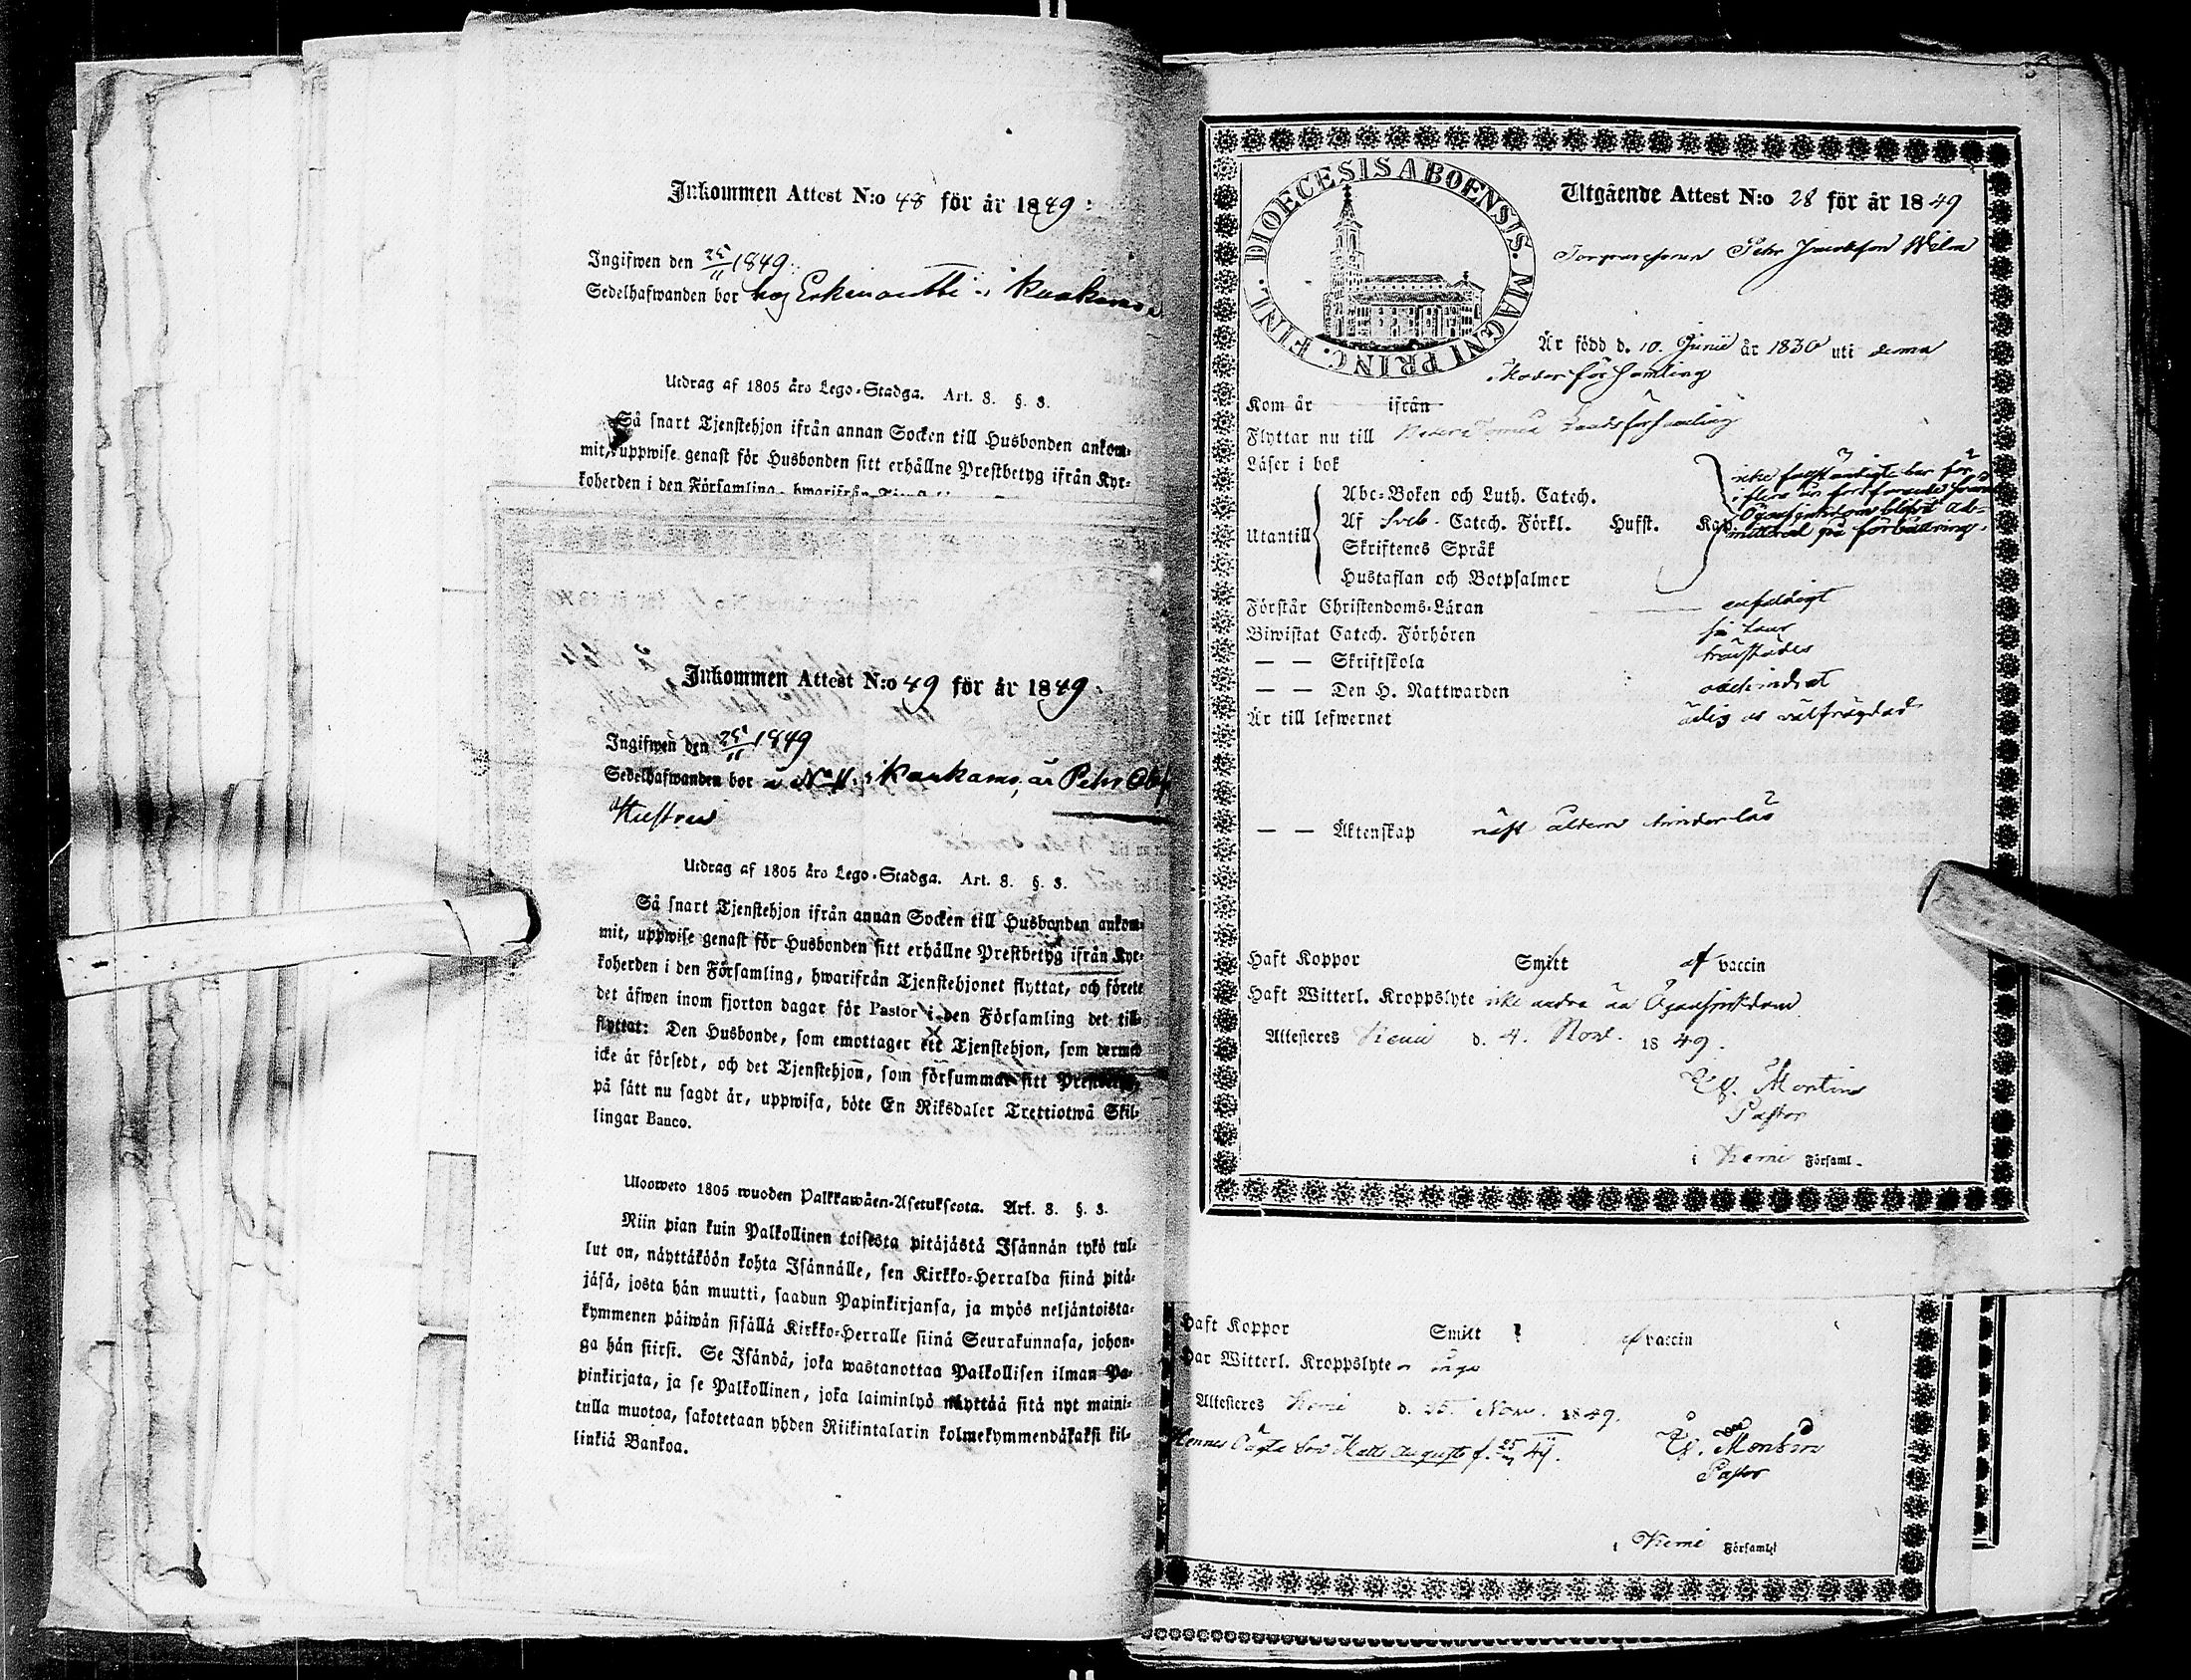 Inkommen Attest N:o 48 för år 1849.
Ingifwen den 25/11 1849.
Sedelhafwanden bor hos Erkinantti i
Utdrag af 1805 års Lego-Stadga. Art. 8. §. 3.
Så snart Tjenstehjon ifrån annan Socken till Husbonden ankom-
mit, uppwise genast för Husbonden sitt erhållne Prestbetyg ifrån Kyr-
koherden i den Församling, hwarifrån
Inkommen Attest N:o 49 för år 1849.
Ingifwen den 25/11 1849
Sedelhafwanden bor å No 11 i Kaakamo, är Pehr
Hustru
Utdrag af 1805 års Lego-Stadga. Art. 8. §. 3.
Så snart Tjenstehjon ifrån annan Socken till Husbonden ankom-
mit, uppwise genast för Husbonden sitt erhållne Prestbetyg ifrån Kyr-
koherden i den Församling, hwarifrån Tjenstehjonet flyttat, och förete
det äfwen inom fjorton dagar för Pastor i den Församling det till-
flyttat: Den Husbonde, som emottager ett Tjenstehjon, som dermed
icke är försedt, och det Tjenstehjon, som försummar sitt Prestbetyg,
på sätt nu sagdt är, uppwisa, böte En Riksdaler Trettiotwå Skil-
lingar Banco.
Ulosweto 1805 wuoden Palkkawäen-Asetuksesta. Art. 8. §. 3.
Niin pian kuin Palkollinen toisesta pitäjästä Isännän tykö tul-
lut on, näyttäköön kohta Isännälle, sen Kirkko-Herralda siinä pitä-
jäsä, josta hän muutti, saadun Papinkirjansa, ja myös neljäntoista-
kymmenen päiwän sisällä Kirkko-Herralle siinä Seurakunnasa, johon-
ga hän siirsi. Se Isändä, joka wastanottaa Palkollisen ilman Pa-
pinkirjata, ja se Palkollinen, joka laiminlyö näyttää sitä nyt maini-
tulla muotoa, sakotetaan yhden Riikintalarin kolmekymmendäkaksi kil-
linkiä Bankoa.
DIOECESIS ABOENSIS. MAGNI PRINC. FINL.
Utgående Attest N:o 28 för år 1849
Torparesonen Pehr Jacobsson Wilm
Är född d. 10. Junii år 1830 uti denna
Moderförsamling
Kom år ifrån
Flyttar nu till Neder Torneå Landsförsamling
Läser i bok
Utantill
Abc-Boken och Luth. Catech.
Af Sveb. Catech. Förkl. Hufst. Kap.
Skriftenes Språk
Hustaflan och Botpsalmer
icke fullständigt har för
flera år fortfarande
Ögonsjukdom blifvit ad-
mitterad på förbättring.
Förstår Christendoms-Läran enfaldigt
Biwistat Catech. Förhören
— — Skriftskola
— — Den H. Nattwarden obehindrat
Är till lefwernet ärlig och välfrägdad
— — Äktenskap
Haft Koppor Smitt af vaccin
Haft Witterl. Kroppslyte icke andra än Ögonsjukdom
Attesteres Kemi d. 4. Nov. 1849.
Montin
Pastor
i Kemi Församl.
Haft Koppor Smitt af vaccin
Har Witterl. Kroppslyte inga
Attesteres Kemi d. 25. Nov. 1849.
Hennes Oägta Son Matts August f. 25/ 44.
Montin
Pastor
i Kemi Församl.